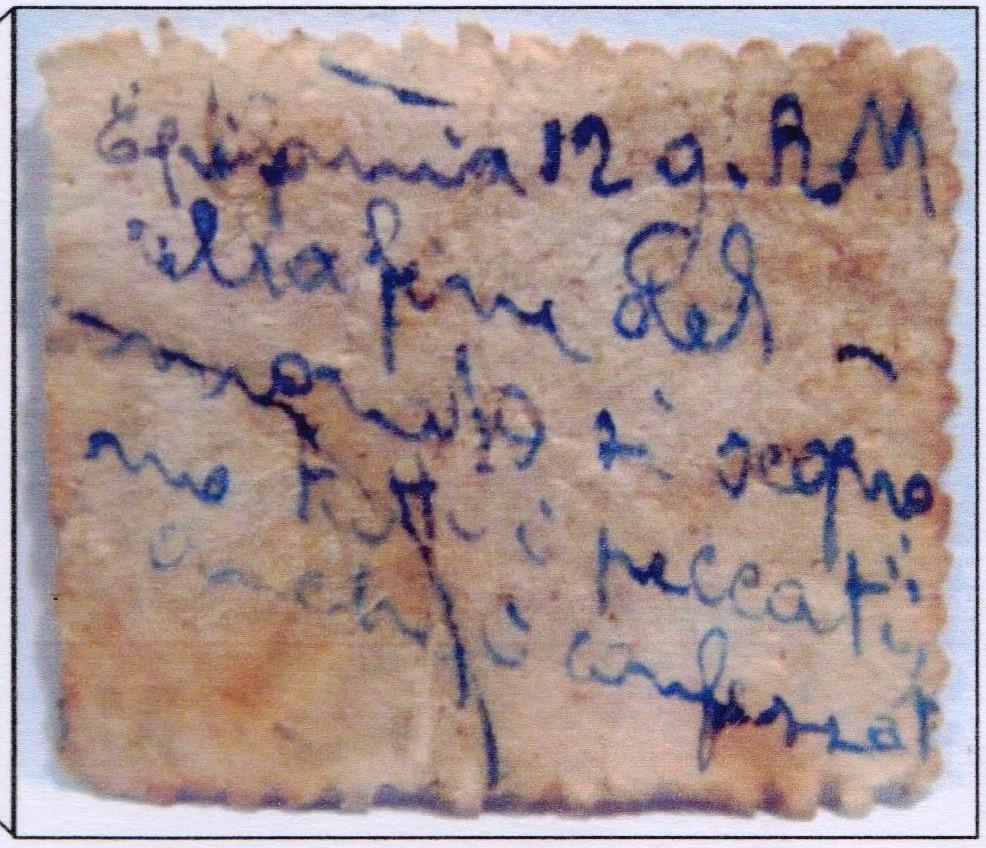 Epifania 12 g. R.M
alla fine del
mondo si sapra
no tutti i peccati,
anche i confessat